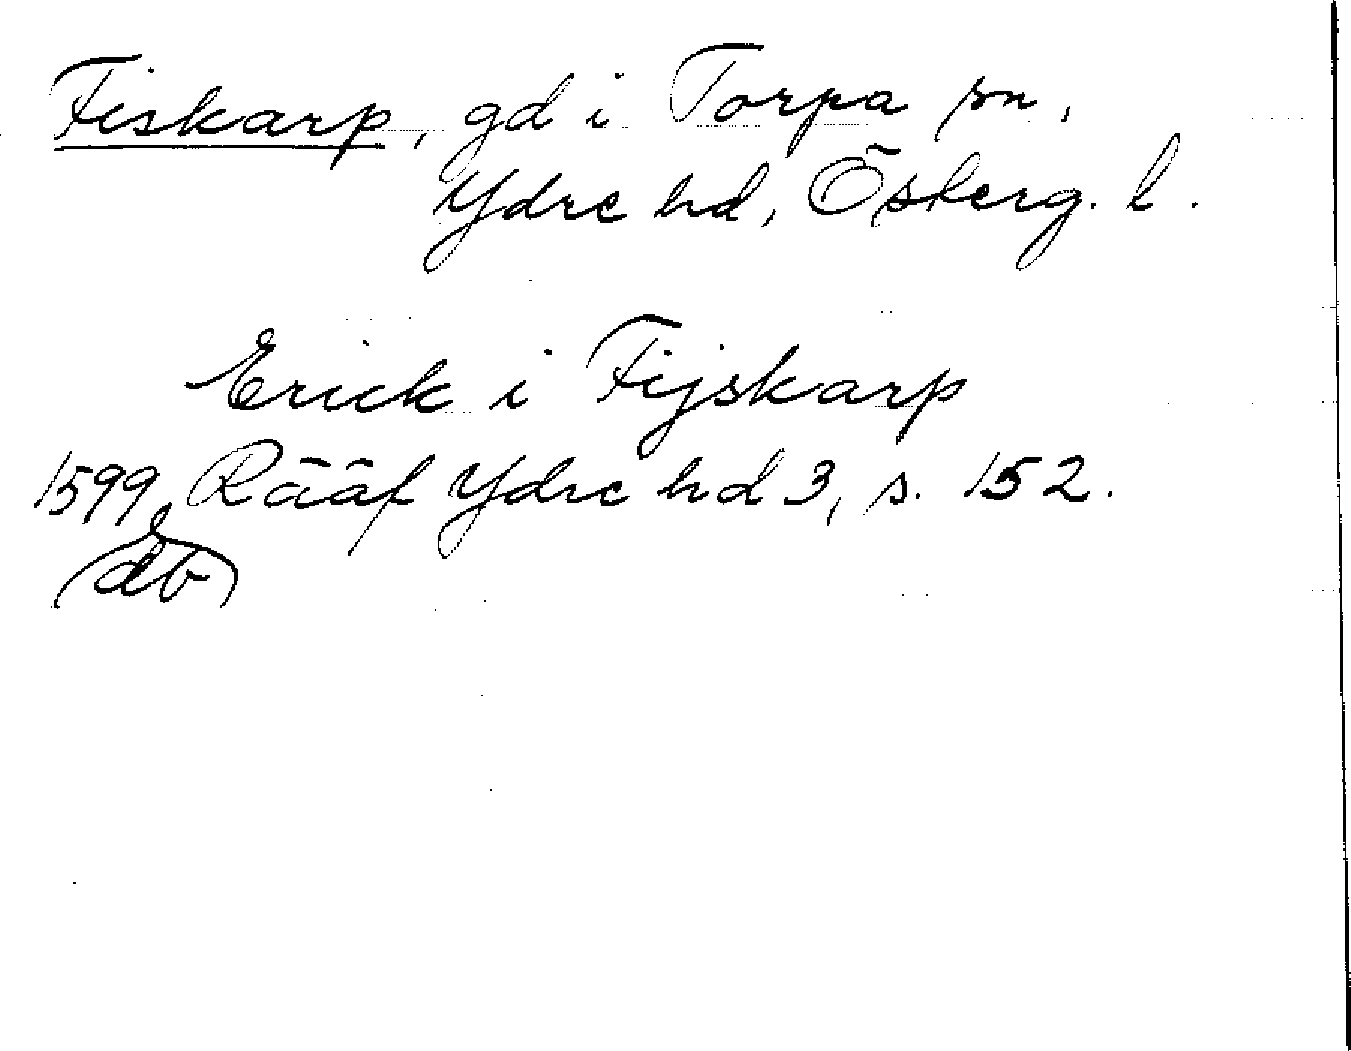 Fiskarp, gd i Torpa sn,
Ydre hd, Österg. l.
Erick i Fijskarp
1599 Rääf Ydre hd 3, s. 152.